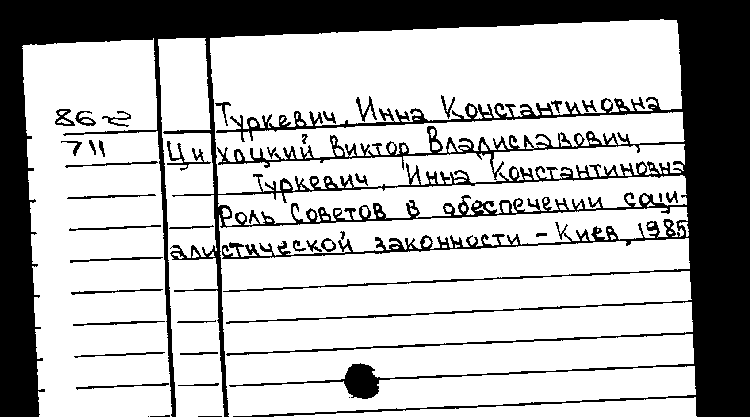 86-2
Туркевич, Инна Константиновна
711
Цихоцкий, Виктор Владиславович,
Туркевич, Инна Константиновна
Роль Советов в обеспечении соци-
алистической законности – Киев, 1985